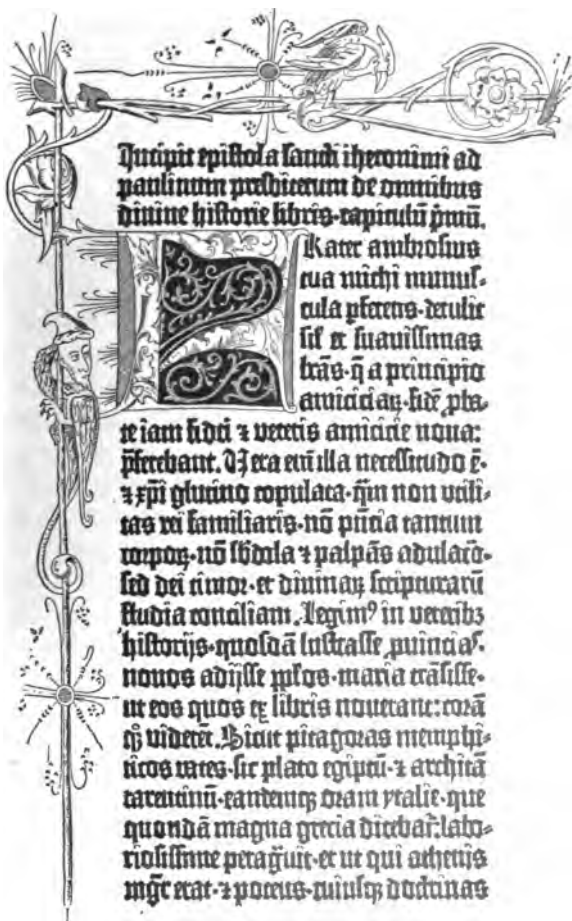 Incipit epistola sancti iheronimi ad
paulinum presbiterum de omnibus
divine historie libris·capitulū p̄mū.
Frater ambrosius
tua michi munus-
cula p̄ferens·detulit
sil' et suavissimas
lr̄as·q̄ a principio
amiciciaꝝ·fidē ꝓba-
te iam fidei ⁊ veteris amicicie nova:
p̄ferebant. Vera eni illa necessitudo ē·
⁊ xp̄i glutino copulata·qm̄ non utili-
tas rei familiaris·nō pn̄tia tantum
corpoꝝ·nō sb̄dola ⁊ palpās adulacō·
sed dei timor·et divinaꝝ scripturarū
studia conciliant. Legimꝰ in veteribꝫ
historijs·quosdā lustrasse ꝓuincias·
novos adijsse pplōs·maria trāsisse·
ut eos quos ex libris noverant: corā
qꝫ viderēt. Sicut pitagoras memphi-
ticos vates·sic plato egiptū·⁊ architā
tarentinū·eandemqꝫ oram ytalie·que
quondā magna grecia dicebat̄: labo-
riosissime peragūit·et ut qui athenis
mgr̄ erat·⁊ potens·cuiusqꝫ doctrinas